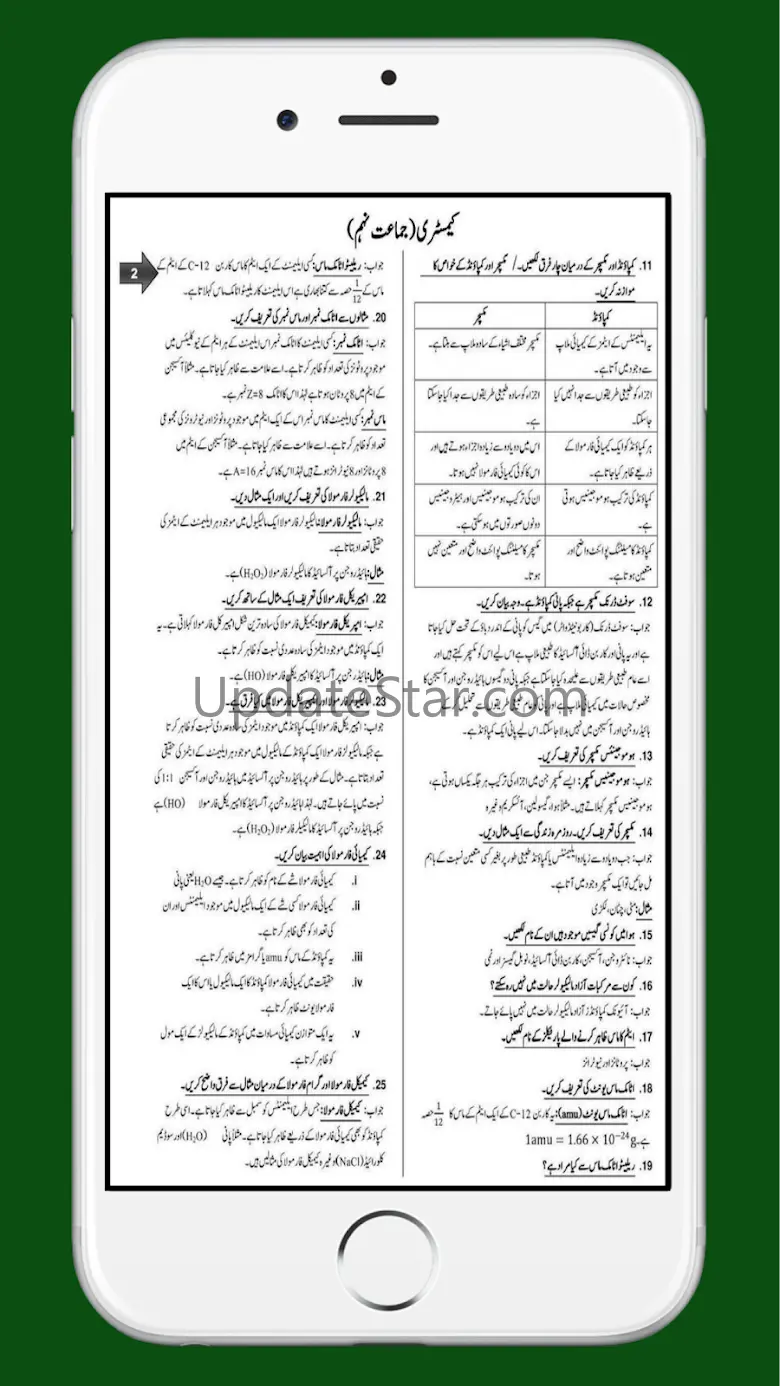 کیمسٹری (جماعت نہم)
11. کمپاؤنڈ اور مکسچر کے درمیان چار فرق لکھیں۔ / مکسچر اور کمپاؤنڈ کے خواص کا
موازنہ کریں۔
کمپاؤنڈ
مکسچر
یہ ایلیمنٹس کے ایٹمز کے کیمیائی ملاپ
سے وجود میں آتا ہے۔
مکسچر مختلف اشیاء کے سادہ ملاپ سے بنتا ہے۔
اجزاء کو طبیعی طریقوں سے جدا نہیں کیا
جا سکتا۔
اجزاء کو سادہ طبیعی طریقوں سے جدا کیا جا سکتا
ہے۔
ہر کمپاؤنڈ کو ایک کیمیائی فارمولا کے
ذریعے ظاہر کیا جاتا ہے۔
اس میں دو یا دو سے زیادہ اجزاء ہوتے ہیں اور
اس کا کوئی کیمیائی فارمولا نہیں ہوتا۔
کمپاؤنڈ کی ترکیب ہوموجینیس ہوتی
ہے۔
ان کی ترکیب ہوموجینیس اور ہیٹروجینیس
دونوں صورتوں میں ہو سکتی ہے۔
کمپاؤنڈ کا میلٹنگ پوائنٹ واضح اور
متعین ہوتا ہے۔
مکسچر کا میلٹنگ پوائنٹ واضح اور متعین نہیں
ہوتا۔
12. سوفٹ ڈرنک مکسچر ہے جبکہ پانی کمپاؤنڈ ہے۔ وجہ بیان کریں۔
جواب: سوفٹ ڈرنک (کاربونیٹڈ واٹر) میں گیس کو پانی کے اندر دباؤ کے تحت حل کیا جاتا
ہے اور یہ پانی اور کاربن ڈائی آکسائیڈ کا طبیعی ملاپ ہے اس لیے اس کو مکسچر کہتے ہیں اور
اسے عام طبیعی طریقوں سے علیحدہ کیا جا سکتا ہے جبکہ پانی دو گیسوں ہائیڈروجن اور آکسیجن کا
مخصوص حالات میں کیمیائی ملاپ ہے اور پانی کو عام طبیعی طریقوں سے تحلیل کر کے
ہائیڈروجن اور آکسیجن میں نہیں بدلا جا سکتا۔ اس لیے پانی ایک کمپاؤنڈ ہے۔
13. ہوموجینئس مکسچر کی تعریف کریں۔
جواب: ہوموجینیس مکسچر: ایسے مکسچر جن میں اجزاء کی ترکیب ہر جگہ یکساں ہوتی ہے،
ہوموجینیس مکسچر کہلاتے ہیں۔ مثلاً ہوا، گیسولین، آئسکریم وغیرہ
14. مکسچر کی تعریف کریں۔ روزمرہ زندگی سے ایک مثال دیں۔
جواب: جب دو یا دو سے زیادہ ایلیمنٹس یا کمپاؤنڈ طبیعی طور پر بغیر کسی متعین نسبت کے باہم
مل جائیں تو ایک مکسچر وجود میں آتا ہے۔
مثال: مٹی، چٹان، لکڑی
15. ہوا میں کونسی گیسیں موجود ہیں ان کے نام لکھیں۔
جواب: نائٹروجن، آکسیجن، کاربن ڈائی آکسائیڈ، نوبل گیسز اور نمی
16. کون سے مرکبات آزاد مالیکیولر حالت میں نہیں رہ سکتے؟
جواب: آئیونک کمپاؤنڈز آزاد مالیکیولر حالت میں نہیں پائے جاتے۔
17. ایٹم کا ماس ظاہر کرنے والے پارٹیکلز کے نام لکھیں۔
جواب: پروٹانز اور نیوٹرانز
18. اٹامک ماس یونٹ کی تعریف کریں۔
جواب: اٹامک ماس یونٹ (amu): یہ کاربن C-12 کے ایک ایٹم کے ماس کا 1/12 حصہ
ہے۔ 1amu = 1.66 × 10⁻²⁴g
19. ریلیٹو اٹامک ماس سے کیا مراد ہے؟
2
جواب: ریلیٹو اٹامک ماس: کسی ایلیمنٹ کے ایک ایٹم کا ماس کاربن C-12 کے ایٹم کے
ماس کے 1/12 حصہ سے کتنا بھاری ہے اس ایلیمنٹ کا ریلیٹو اٹامک ماس کہلاتا ہے۔
20. مثالوں سے اٹامک نمبر اور ماس نمبر کی تعریف کریں۔
جواب: اٹامک نمبر: کسی ایلیمنٹ کا اٹامک نمبر اس ایلیمنٹ کے ہر ایٹم کے نیوکلیئس میں
موجود پروٹونز کی تعداد کو ظاہر کرتا ہے۔ اسے علامت سے ظاہر کیا جاتا ہے۔ مثلاً آکسیجن
کے ایٹم میں 8 پروٹان ہوتا ہے لہٰذا اس کا اٹامک Z=8 نمبر ہے۔
ماس نمبر: کسی ایلیمنٹ کا ماس نمبر اس کے ایک ایٹم میں موجود پروٹونز اور نیوٹرونز کی مجموعی
تعداد کو ظاہر کرتا ہے۔ اسے علامت سے ظاہر کیا جاتا ہے۔ مثلاً آکسیجن کے ایٹم میں
8 پروٹانز اور 8 نیوٹرانز ہوتے ہیں لہٰذا اس کا ماس نمبر A=16 ہے۔
21. مالیکیولر فارمولا کی تعریف کریں اور ایک مثال دیں۔
جواب: مالیکیولر فارمولا: مالیکیولر فارمولا ایک مالیکیول میں موجود ہر ایلیمنٹ کے ایٹمز کی
حقیقی تعداد بتاتا ہے۔
مثال: ہائیڈروجن پر آکسائیڈ کا مالیکیولر فارمولا (H₂O₂) ہے۔
22. امپیریکل فارمولا کی تعریف ایک مثال کے ساتھ کریں۔
جواب: امپیریکل فارمولا: کیمیکل فارمولا کی سادہ ترین شکل امپیریکل فارمولا کہلاتی ہے۔ یہ
ایک کمپاؤنڈ میں موجود ایٹمز کی سادہ عددی نسبت کو ظاہر کرتا ہے۔
مثال: ہائیڈروجن پر آکسائیڈ کا امپیریکل فارمولا (HO) ہے۔
23. مالیکیولر فارمولا اور ایمپیریکل فارمولا میں کیا فرق ہے۔
جواب: امپیریکل فارمولا ایک کمپاؤنڈ میں موجود ایٹمز کی سادہ عددی نسبت کو ظاہر کرتا
ہے جبکہ مالیکیولر فارمولا ایک کمپاؤنڈ کے مالیکیول میں موجود ہر ایلیمنٹ کے ایٹمز کی حقیقی
تعداد بتاتا ہے۔ مثال کے طور پر ہائیڈروجن پر آکسائیڈ میں ہائیڈروجن اور آکسیجن 1:1 کی
نسبت میں پائے جاتے ہیں۔ لہٰذا ہائیڈروجن پر آکسائیڈ کا امپیریکل فارمولا (HO) ہے
جبکہ ہائیڈروجن پر آکسائیڈ کا مالیکیولر فارمولا (H₂O₂) ہے۔
24. کیمیائی فارمولا کی اہمیت بیان کریں۔
i. کیمیائی فارمولا شے کے نام کو ظاہر کرتا ہے۔ جیسے H₂O یعنی پانی
ii. کیمیائی فارمولا کسی شے کے ایک مالیکیول میں موجود ایلیمنٹس اور ان
کی تعداد کو بھی ظاہر کرتا ہے۔
iii. یہ کمپاؤنڈ کے ماس کو amu یا گرامز میں ظاہر کرتا ہے۔
iv. حقیقت میں کیمیائی فارمولا کمپاؤنڈ کا ایک مالیکیول یا اس کا ایک
فارمولا یونٹ ظاہر کرتا ہے۔
v. یہ ایک متوازن کیمیائی مساوات میں کمپاؤنڈ کے مالیکیولز کے ایک مول
کو ظاہر کرتا ہے۔
25. کیمیکل فارمولا اور گرام فارمولا کے درمیان مثال سے فرق واضح کریں۔
جواب: کیمیکل فارمولا: جس طرح ایلیمنٹس کو سمبل سے ظاہر کیا جاتا ہے۔ اسی طرح
کمپاؤنڈ کو بھی کیمیائی فارمولا کے ذریعے ظاہر کیا جاتا ہے۔ مثلاً پانی (H₂O) اور سوڈیم
کلورائیڈ (NaCl) وغیرہ کیمیکل فارمولا کی مثالیں ہیں۔
UpdateStar.com